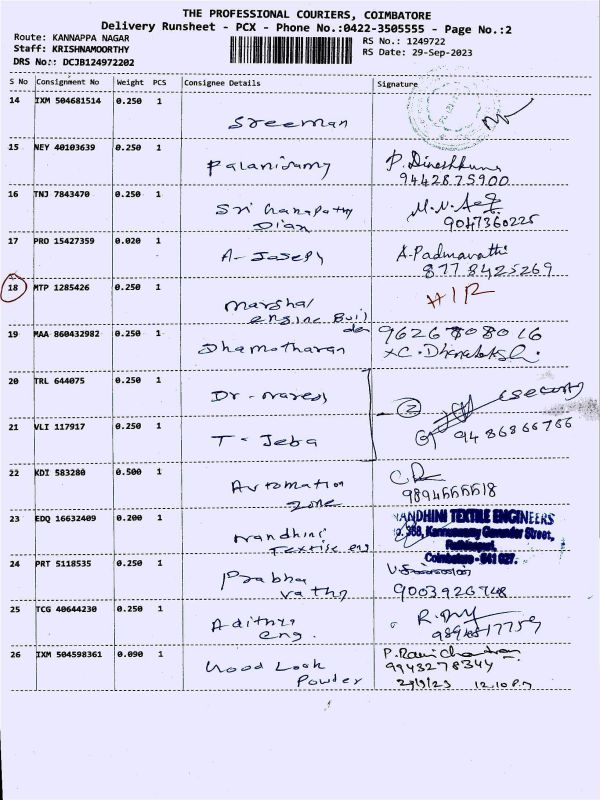 THE PROFESSIONAL COURIERS, COIMBATORE
Delivery Runsheet - PCX - Phone No.:0422-3505555 - Page No.:2
Route: KANNAPPA NAGAR
Staff: KRISHNAMOORTHY
DRS No:: DCJB124972202
RS No.: 1249722
RS Date: 29-Sep-2023
S No Consignment No Weight PCS Consignee Details Signature
14 IXM 504681514 0.250 1
Sreeman
15 NEY 40103639 0.250 1
Palanisamy P. Dineshkumar
9442875900
16 TNJ 7843470 0.250 1
Sri Ganapathy
Dian 9047360225
17 PRO 15427359 0.020 1
A- Joseph A. Padmavathi
8778425269
18 MTP 1285426 0.250 1
Marshal
engine Buil
der
19 MAA 860432982 0.250 1 9626808016
Dhamotharan
20 TRL 644075 0.250 1
Dr - naresh (Security)
2
21 VLI 117917 0.250 1
T - Jeba 9486866766
22 KDI 583280 0.500 1
Automation
zone
23 EDQ 16632409 0.200 1 NANDHINI TEXTILE ENGINEERS
Nandhini
Textile eng
Coimbatore - 641 027.
24 PRT 5118535 0.250 1
Prabha
vathy 9003926748
25 TCG 40644230 0.250 1
Adithya
eng.
26 IXM 504598361 0.090 1 P. Ravichandran
Wood Look 9943278344
Powder 29/9/23 12.10 P.M